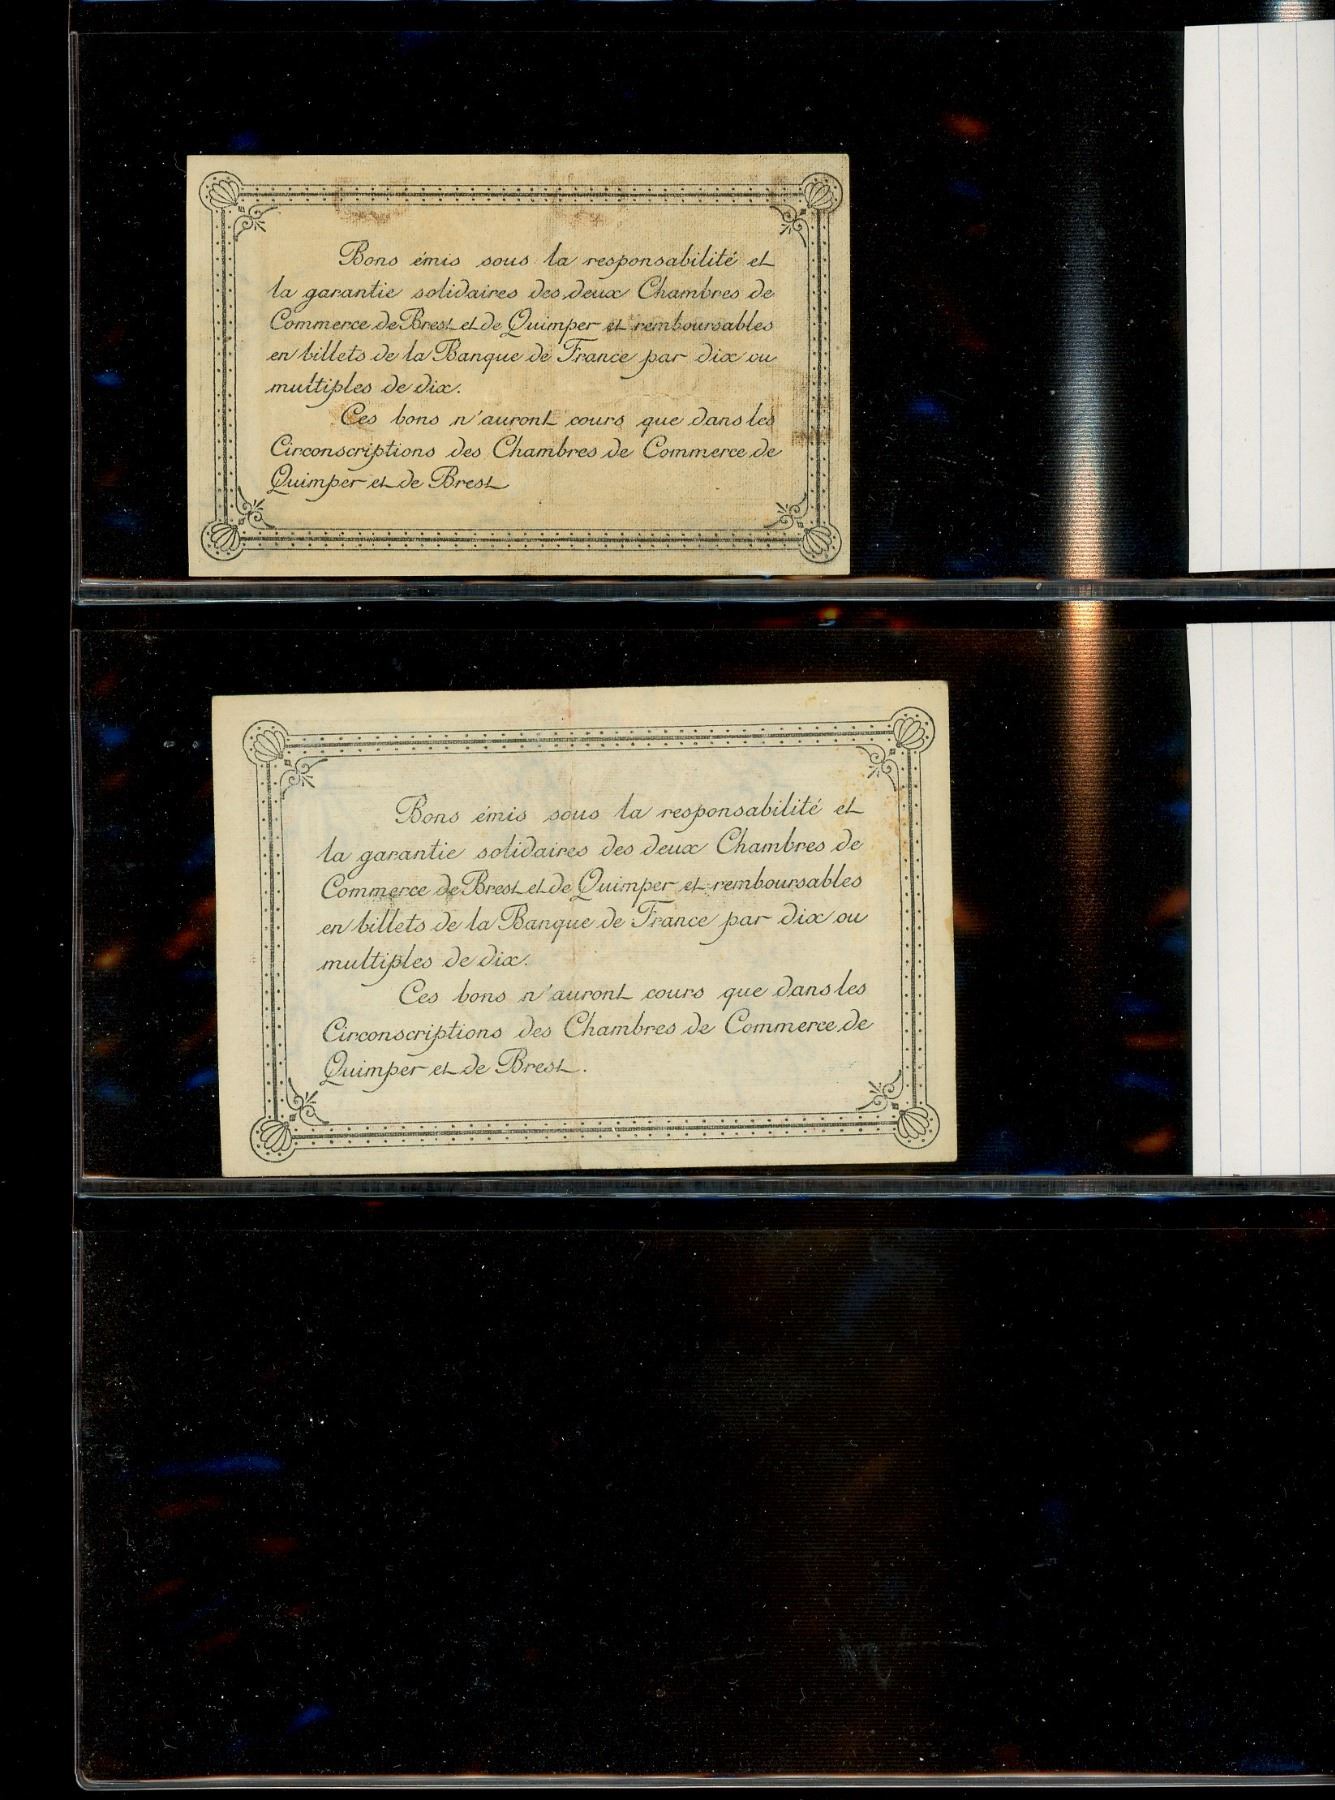 Bons émis sous la responsabilité et
la garantie solidaires des deux Chambres de
Commerce de Brest et de Quimper et remboursables
en billets de la Banque de France par dix ou
multiples de dix.
Ces bons n'auront cours que dans les
Circonscriptions des Chambres de Commerce de
Quimper et de Brest
Bons émis sous la responsabilité et
la garantie solidaires des deux Chambres de
Commerce de Brest et de Quimper et remboursables
en billets de la Banque de France par dix ou
multiples de dix.
Ces bons n'auront cours que dans les
Circonscriptions des Chambres de Commerce de
Quimper et de Brest.